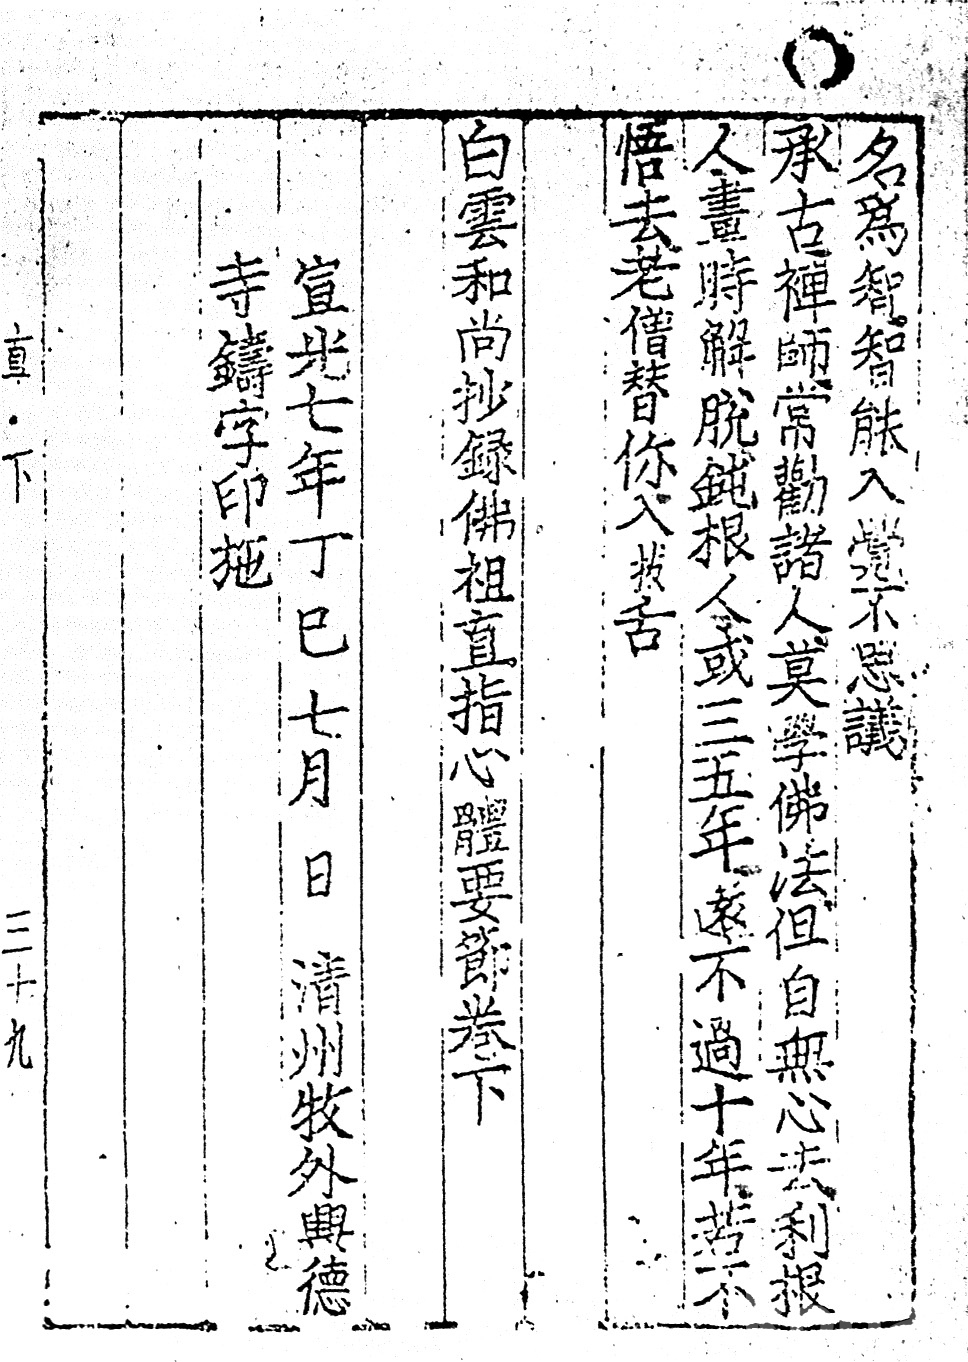 名爲智智能入覺不思議
承古禪師常勸諸人莫學佛法但自無心去利根
人晝時解脫鈍根人或三五年遠不過十年若不
悟去老僧替你入拔舌
白雲和尚抄錄佛祖直指心體要節卷下
宣光七年丁巳七月 日 淸州牧外興德
寺鑄字印施
直·下
三十九